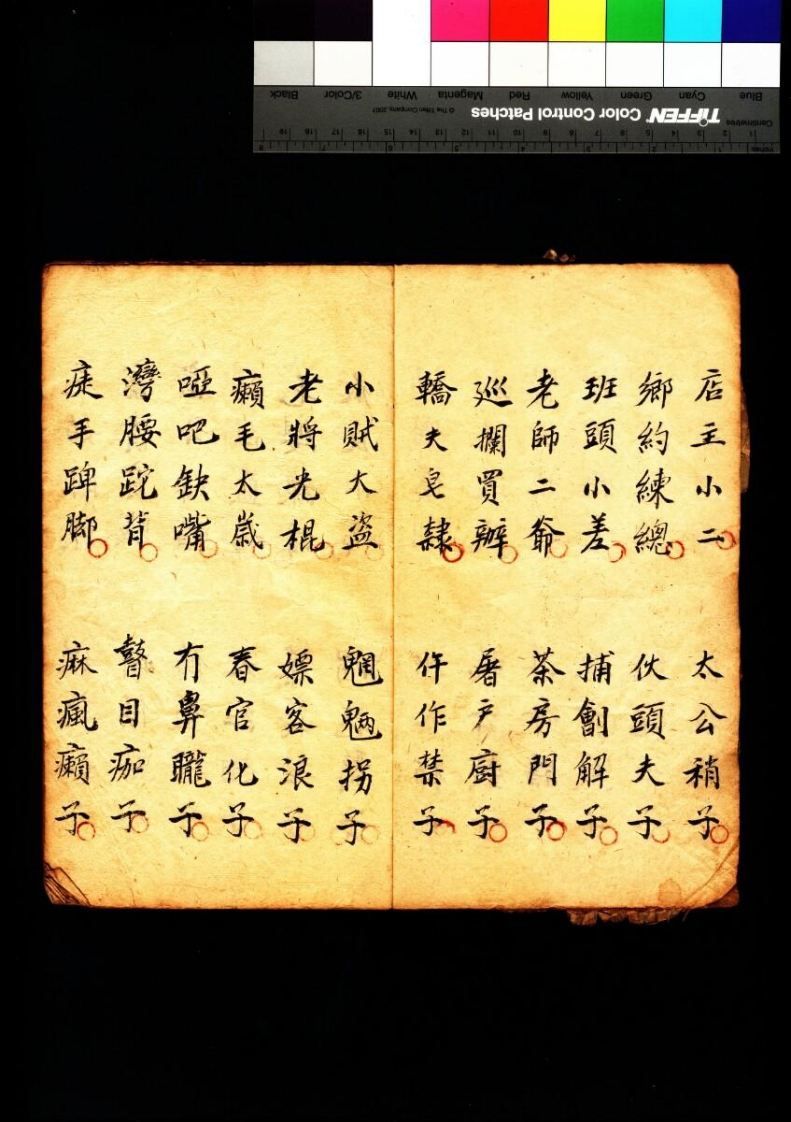 店主小二
太公稍子
鄉約練總
伙頭夫子
班頭小差
捕劊解子
老師二爺
茶房門子
巡攔買辦
屠户廚子
轎夫皂隸
仵作禁子
小賊大盗
魍魎拐子
老將光棍
嫖客浪子
癩毛太歲
春官化子
啞吧缺嘴
冇鼻朧子
灣腰跎背
瞽目痂子
手踔脚
痳瘋癩子
TIFFEN Color Control Patches
© The Tiffen Company, 2007
Blue Cyan Green Yellow Red Magenta White 3/Color Black
Centimetres
Inches